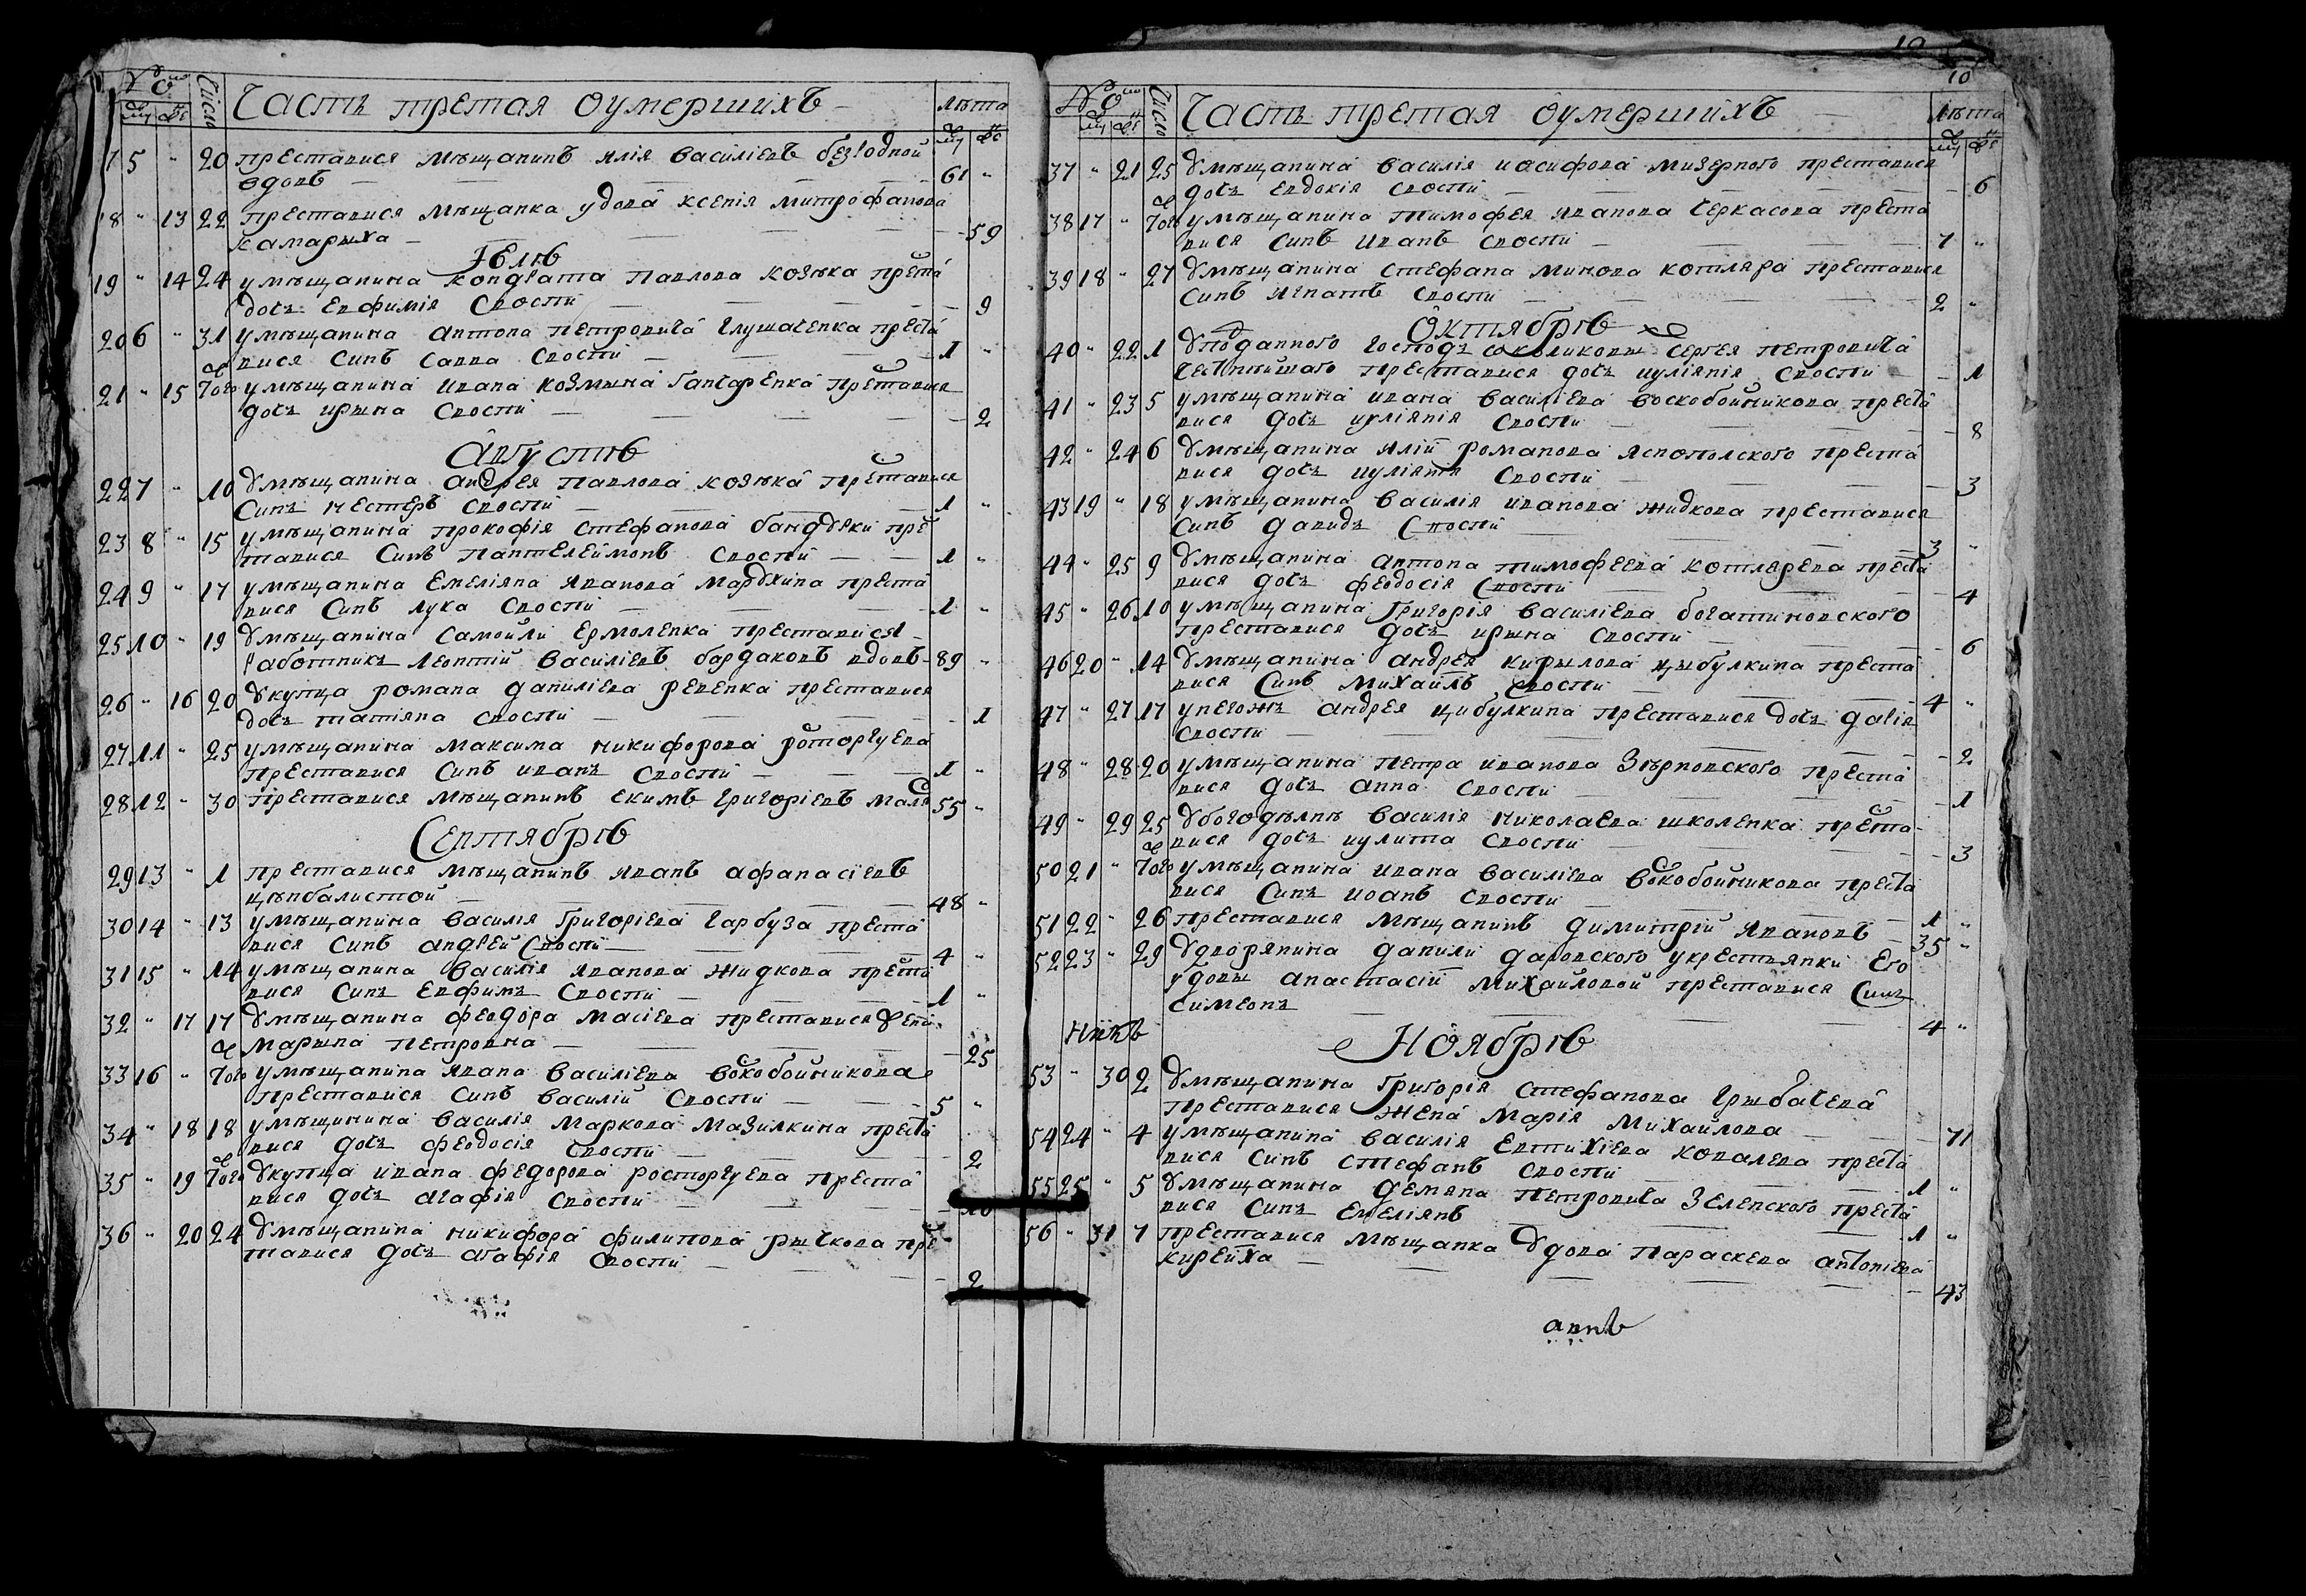 № Число Часть третая оумершихъ лѣта
17 5 " 20 преставися мѣщанинъ илія василіевъ безродной
вдовъ 61 "
18 " 13 22 преставися мѣщанка удова ксенія митрофанова
камарыха 59
Іюль
19 " 14 24 у мѣщанина кондрата павлова козъка преста
дочь евфимія своспи 9
20 6 " 31 у мѣщанина антона петровича глушаченка преста
вися синъ савва своспи 1 "
21 " 15 Того у мѣщанина ивана козмына гапчаренка преставися
дочь ирына своспи 2
Августъ
22 7 " 10 У мѣщанина андрея павлова козъка преставися
синъ нестеръ своспи 1 "
23 8 " 15 у мѣщанина прокофія стефанова бандурки прес
тавися синъ пантелеймонъ своспи 1 "
24 9 " 17 у мѣщанина емеліяна иванова преста
вися синъ лука своспи 1 "
25 10 " 19 У мѣщанина самойли ермоленка преставися
работникъ леонтій василіевъ бардаковъ вдовъ 89 "
26 " 16 20 У купца романа даниліева ревенка преставися
дочь татіяна своспи 1
27 11 " 25 у мѣщанина максима никифорова росторгуева
преставися синъ иванъ своспи 1 "
28 12 " 30 преставися мѣщанинъ екимъ григоріевъ 55 "
Септябрь
29 13 " 1 преставися мѣщанинъ иванъ афанасіевъ
цынбалистой 48 "
30 14 " 13 у мѣщанина василія григоріева гарбуза преста
вися синъ андрей своспи 4 "
31 15 " 14 у мѣщанина василія иванова жидкова преста
вися синъ евфимъ своспи 1 "
32 " 17 17 У мѣщанина феодора масіева преставися жена
марына петровна 25
33 16 " Того у мѣщанина ивана василіева воскобойникова
преставися синъ василій своспи 5 "
34 " 18 18 у мѣщинина василія маркова мазилкина преста
вися дочь феодосія своспи 2
35 " 19 Того У купца ивана федорова росторгуева преста
вися дочь агафія своспи 10
36 " 20 24 У мѣщанина никифора филипова рычкова прес
тавися дочь агафія своспи 2
10
10
№ Число Часть третая оумершихъ лѣта
37 " 21 25 У мѣщанина василія иосифова мизерного преставися
дочь евдокія своспи 6
38 17 " Того у мѣщанина тимофея иванова черкасова преста
вися синъ иванъ своспи 7 "
39 18 " 27 У мѣщанина стефана минова котляра преставися
синъ игнатъ своспи 2 "
Октябрь
40 " 22 1 У подданного господъ соколиковы сергея петровича
преставися дочь иуліянія своспи 1
41 " 23 5 у мѣщанина ивана василіева воскобойникова преста
вися дочь иуліянія своспи 8
42 " 24 6 У мѣщанина иліи романова яснополского преста
вися дочь иуліятя своспи 3
43 19 " 18 у мѣщанина василія иванова жидкова преставися
синъ давидъ своспи 3 "
44 " 25 9 У мѣщанина антона тимофеева котлярева преста
вися дочь феодосія своспи 4
45 " 26 10 у мѣщанина григорія василіева богатиновского
преставися дочь ирына своспи 6
46 20 " 14 У мѣщанина андрея кирылова цыбулкина преста
вися синъ михаилъ своспи 4 "
47 " 27 17 у негожъ андрея цибулкина преставися дочь
своспи 2
48 " 28 20 у мѣщанина петра иванова преста
вися дочь анна своспи 1
49 " 29 25 У богодѣлнѣ василія николаева школенка преста
вися дочь иулита своспи 3
50 21 " Того у мѣщанина ивана василіева воскобойникова преста
вися синъ иоанъ своспи 1 "
51 22 " 26 преставися мѣщанинъ димитрій ивановъ 35 "
52 23 " 29 У дворянина данили даровского у крестьянки его
удовы анастасіи михайловой преставися синъ
симеонъ 4 "
Ноябрь
53 " 30 2 У мѣщанина григорія стефанова грыбачева
преставися жена марія михайлова 71
54 24 " 4 у мѣщанина василія евтихіева ковалева преста
вися синъ стефанъ своспи 1 "
55 25 " 5 У мѣщанина демяна петровича зеленского преста
вися синъ емеліянъ 1 "
56 " 31 7 преставися мѣщанка удова параскева антоніева
кирейха 43